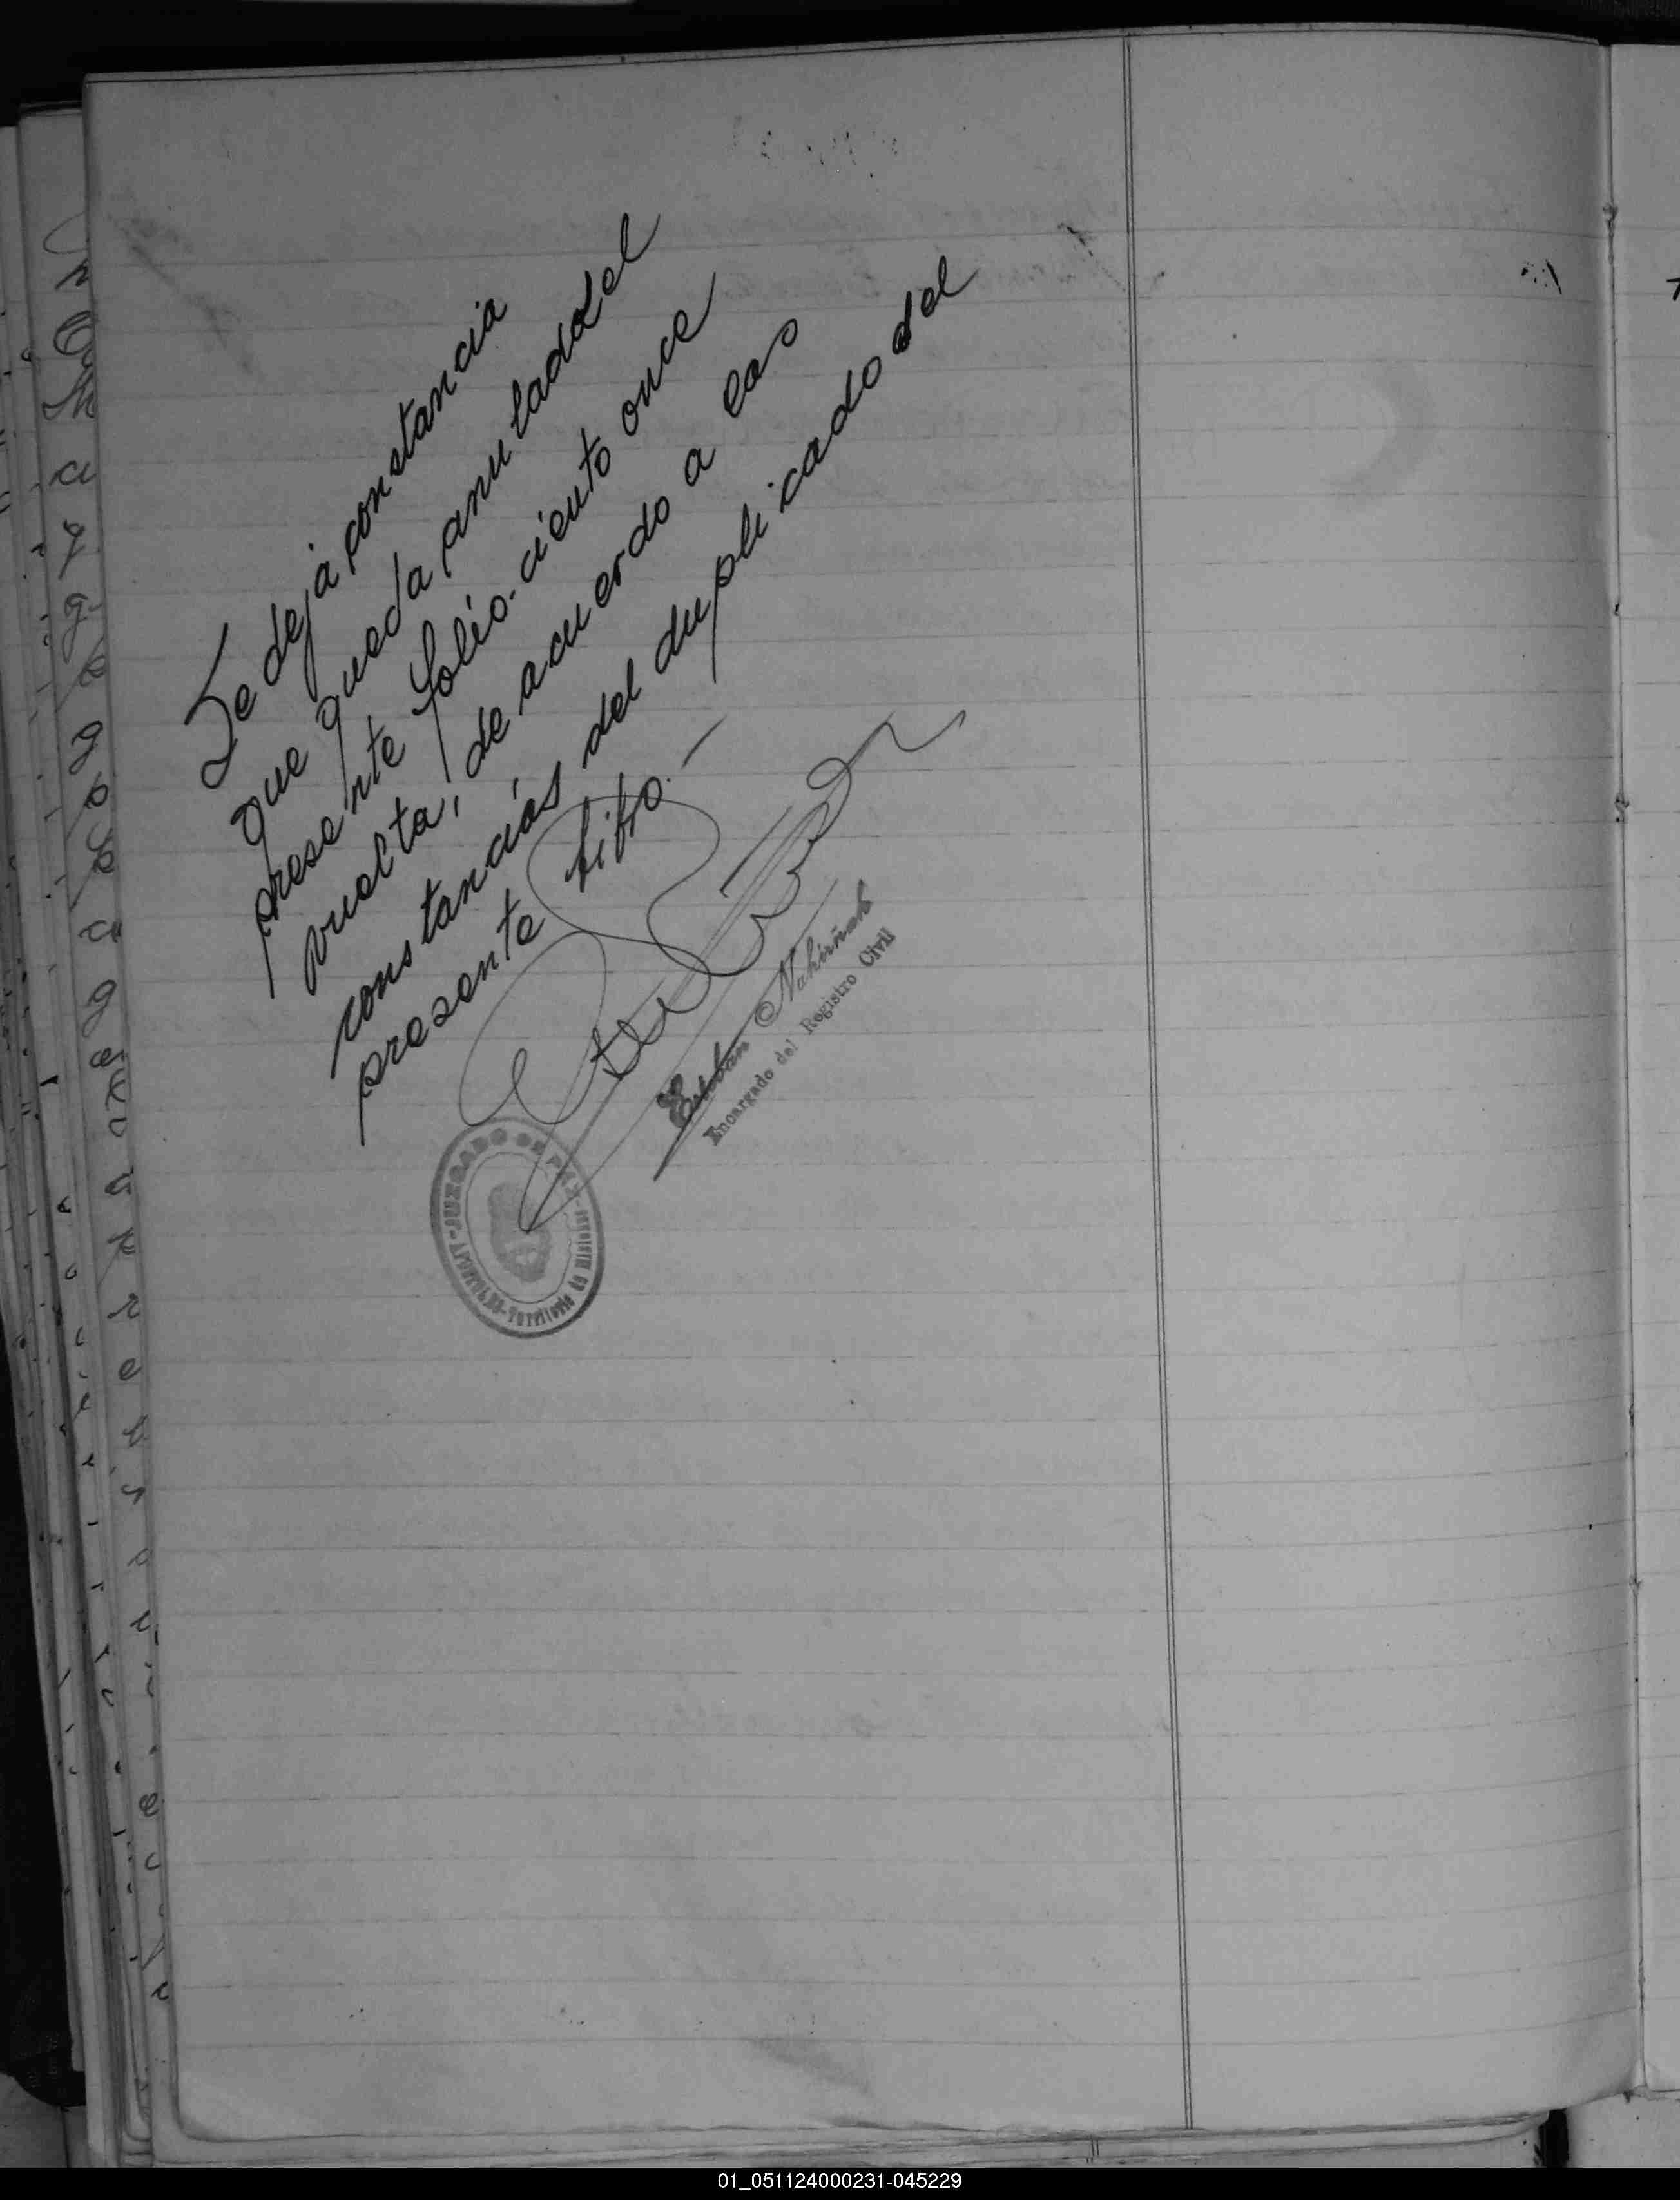 Se deja constancia
que queda anulado del
presente folio ciento once
vuelta, de acuerdo a las
constancias del duplicado del
presente libro.—
Esteban Nahirñak
Encargado del Registro Civil
JUZGADO DE PAZ
Territorio de Misiones
01_051124000231-045229